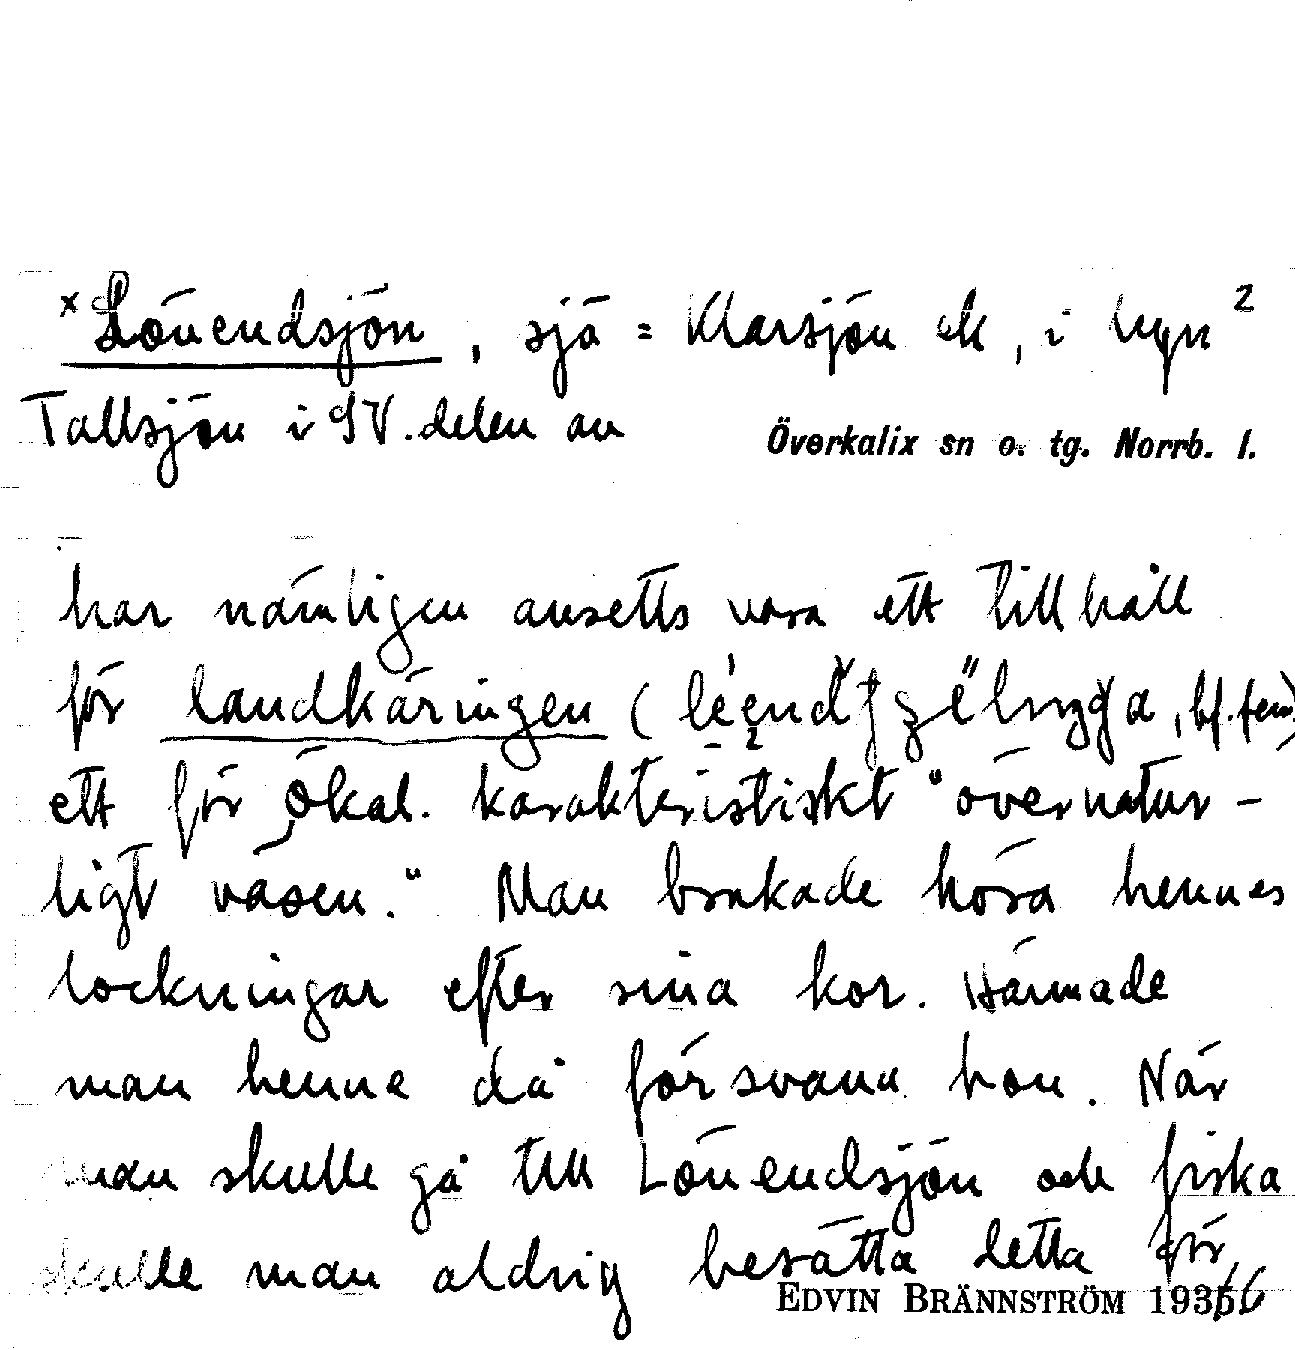 ×Lönendsjön, sjö = Klarsjön ek, i byn 2
Tallsjön i SV. delen av Överkalix sn o. tg. Norrb. l.
har nämligen ansetts vara ett tillhåll
för landkäringen (
ett för Ökal. karakteristiskt "övernatur-
ligt väsen." Man brukade höra hennes
lockningar efter sina kor. Härmade
man henne då försvann hon. När
man skulle gå till Lönendsjön och fiska
skulle man aldrig berätta detta för
EDVIN BRÄNNSTRÖM 1936